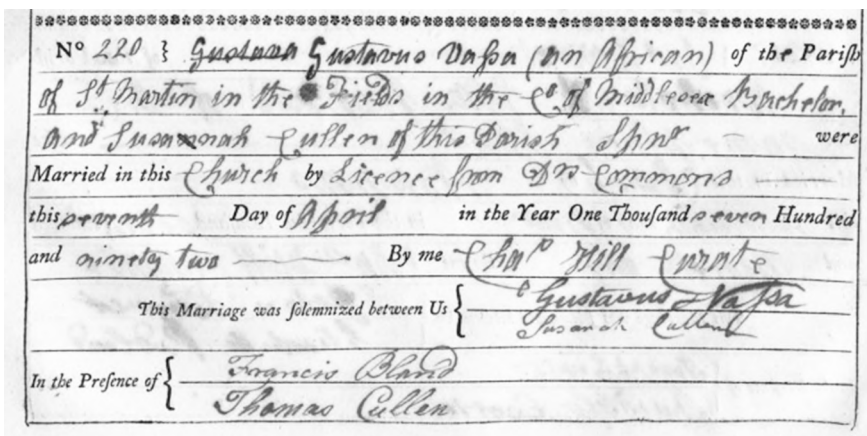 No 220 } Gustava Gustavus Vaſsa (an African) of the Pariſh
of St Martin in the Fields in the Co of Middlesex Bachelor,
and Susannah Cullen of this Parish Spnr were
Married in this Church by Licence from Drs Commons
this seventh Day of April in the Year One Thouſand seven Hundred
and ninety two By me Chas Hill Curate
This Marriage was ſolemnized between Us { Gustavus Vaſsa
Susanah Cullen
In the Preſence of { Francis Bland
Thomas Cullen